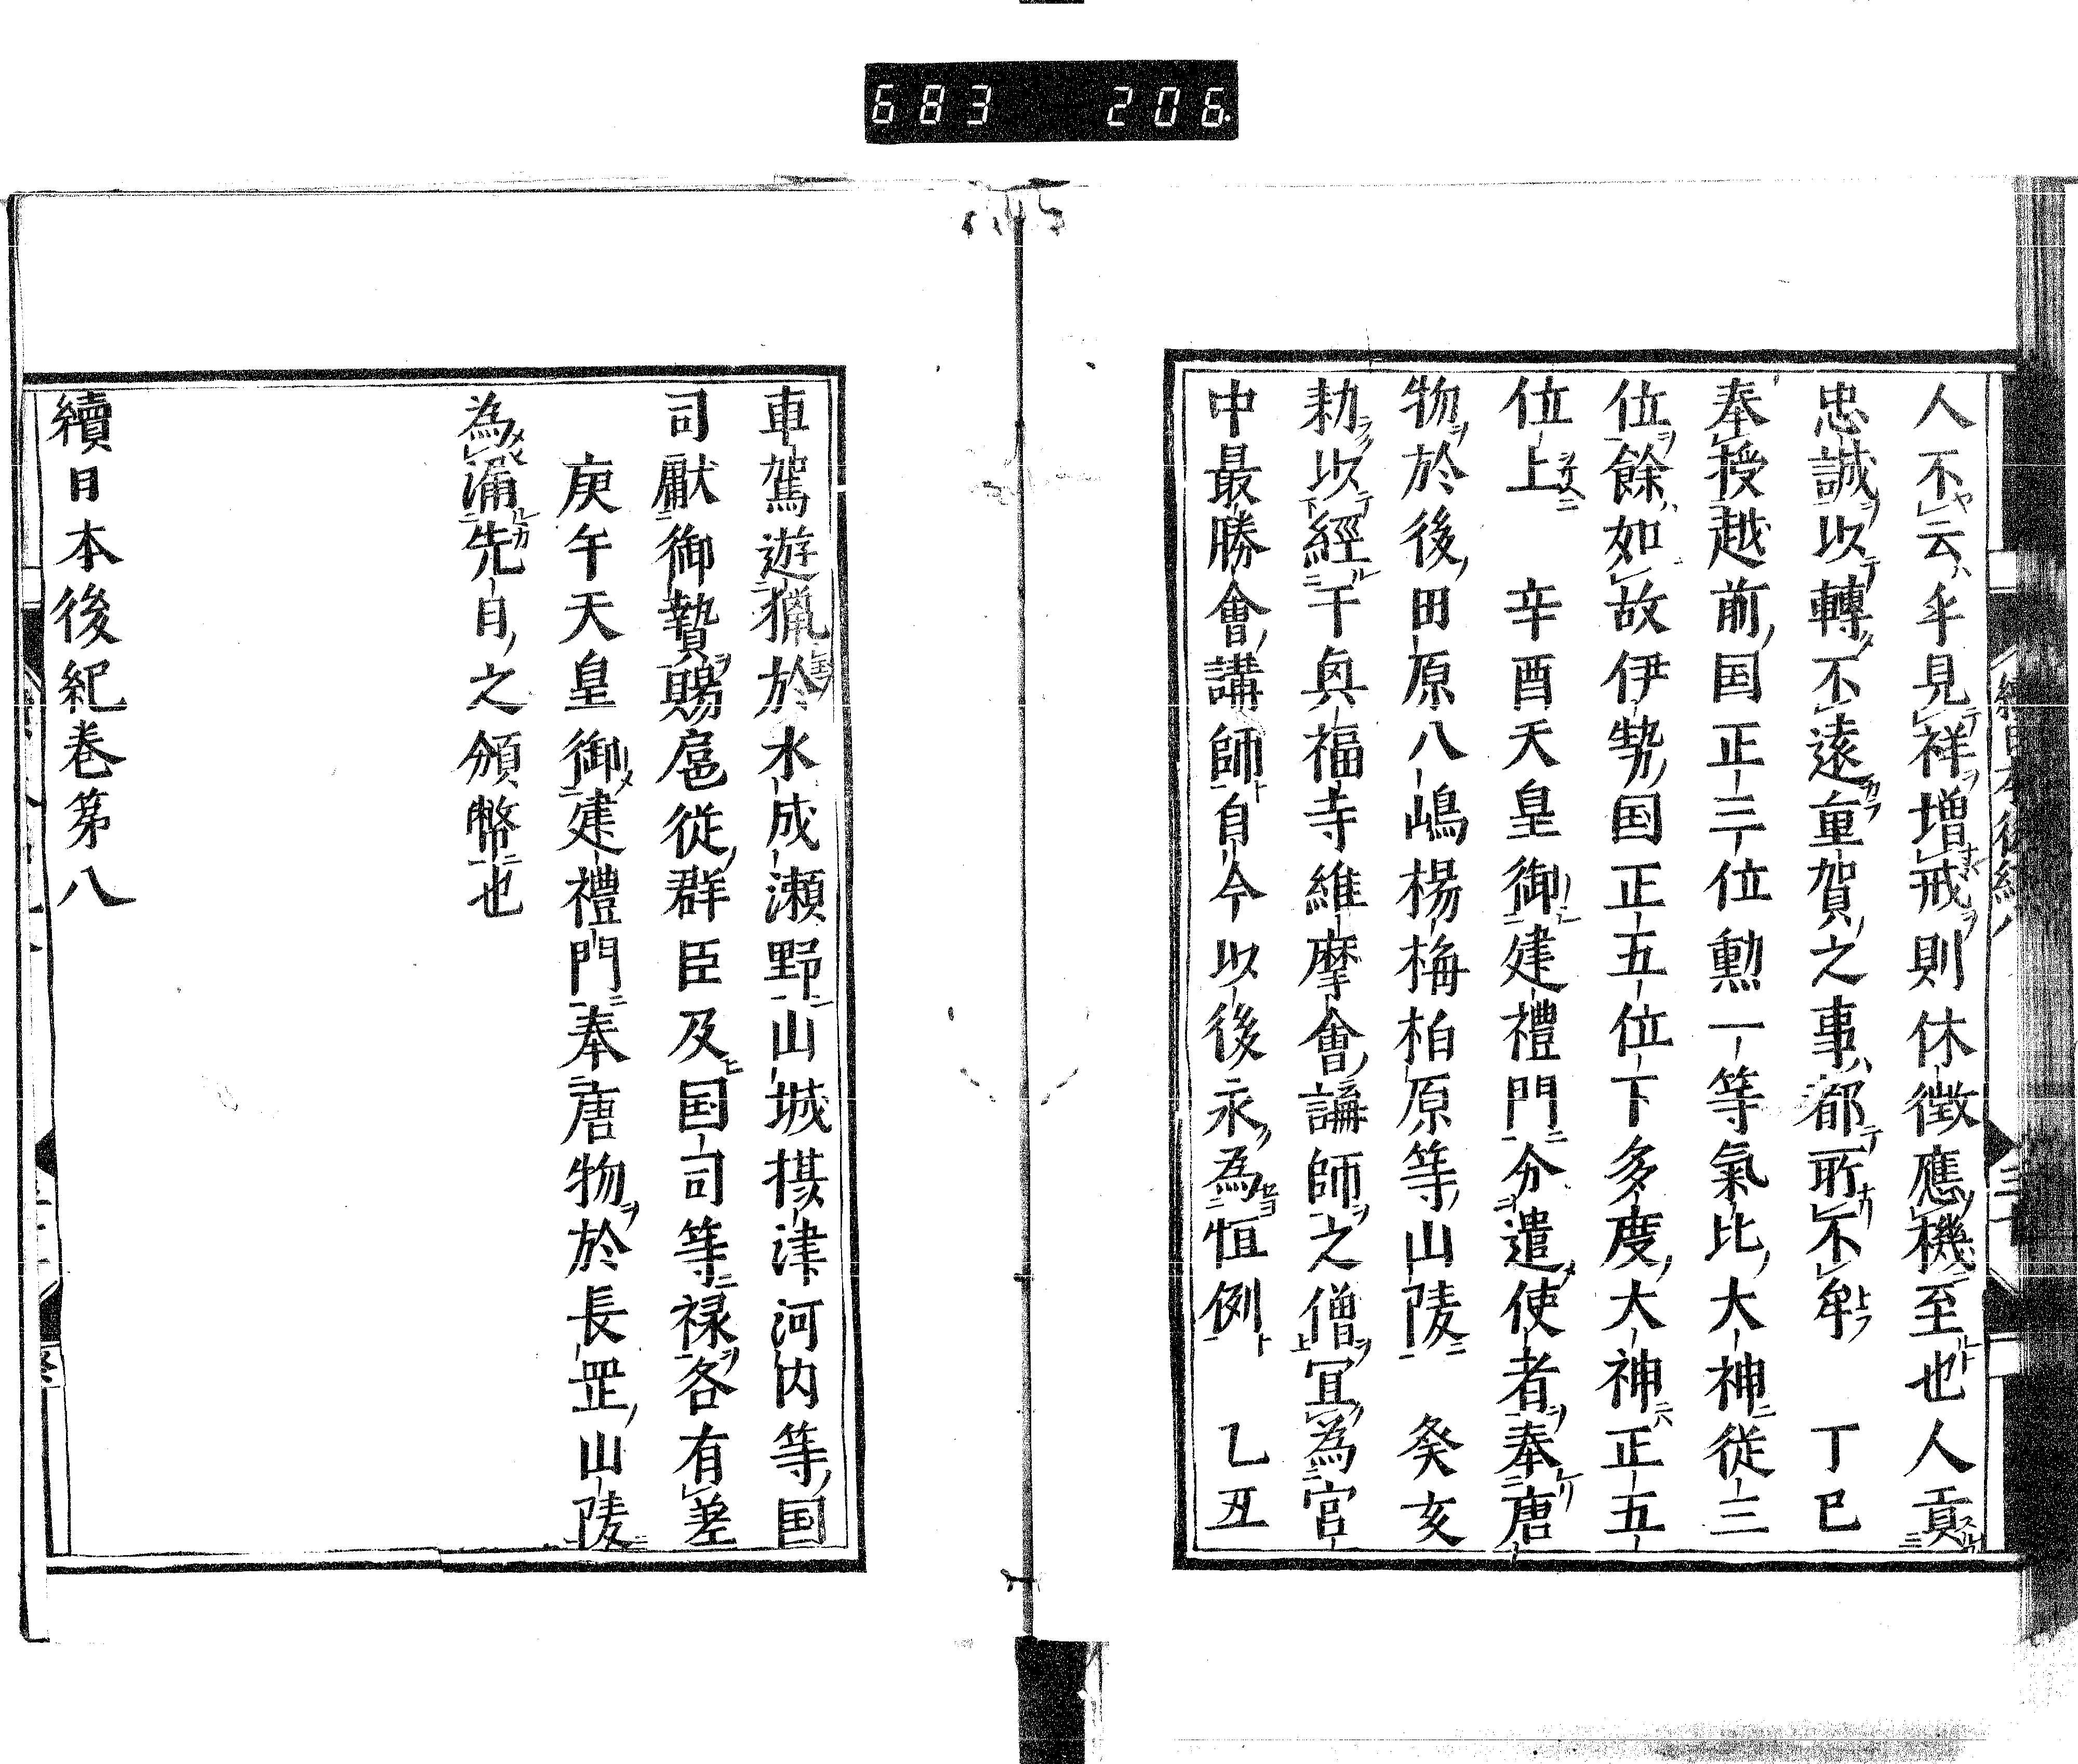 683 206
人不云乎見祥増戒則休徴應機至也人貢
忠誠以轉不遠重賀之事都所不牟 丁巳
奉授越前国正三位勲一等氣比大神従三
位餘如故伊勢国正五位下多度大神正五
位上 辛酉天皇御建禮門分遣使者奉唐
物於後田原八嶋楊梅柏原等山陵 癸亥
勅以經干興福寺維摩會講師之僧冝為宮
中最勝會講師自今以後永為恒例 乙丑
車駕遊獵於水成瀬野山城摂津河内等国
司獻御贄賜扈従群臣及国司等禄各有差
庚午天皇御建禮門奉唐物於長罡山陵
為漏先日之頒幣也
續日本後紀巻第八